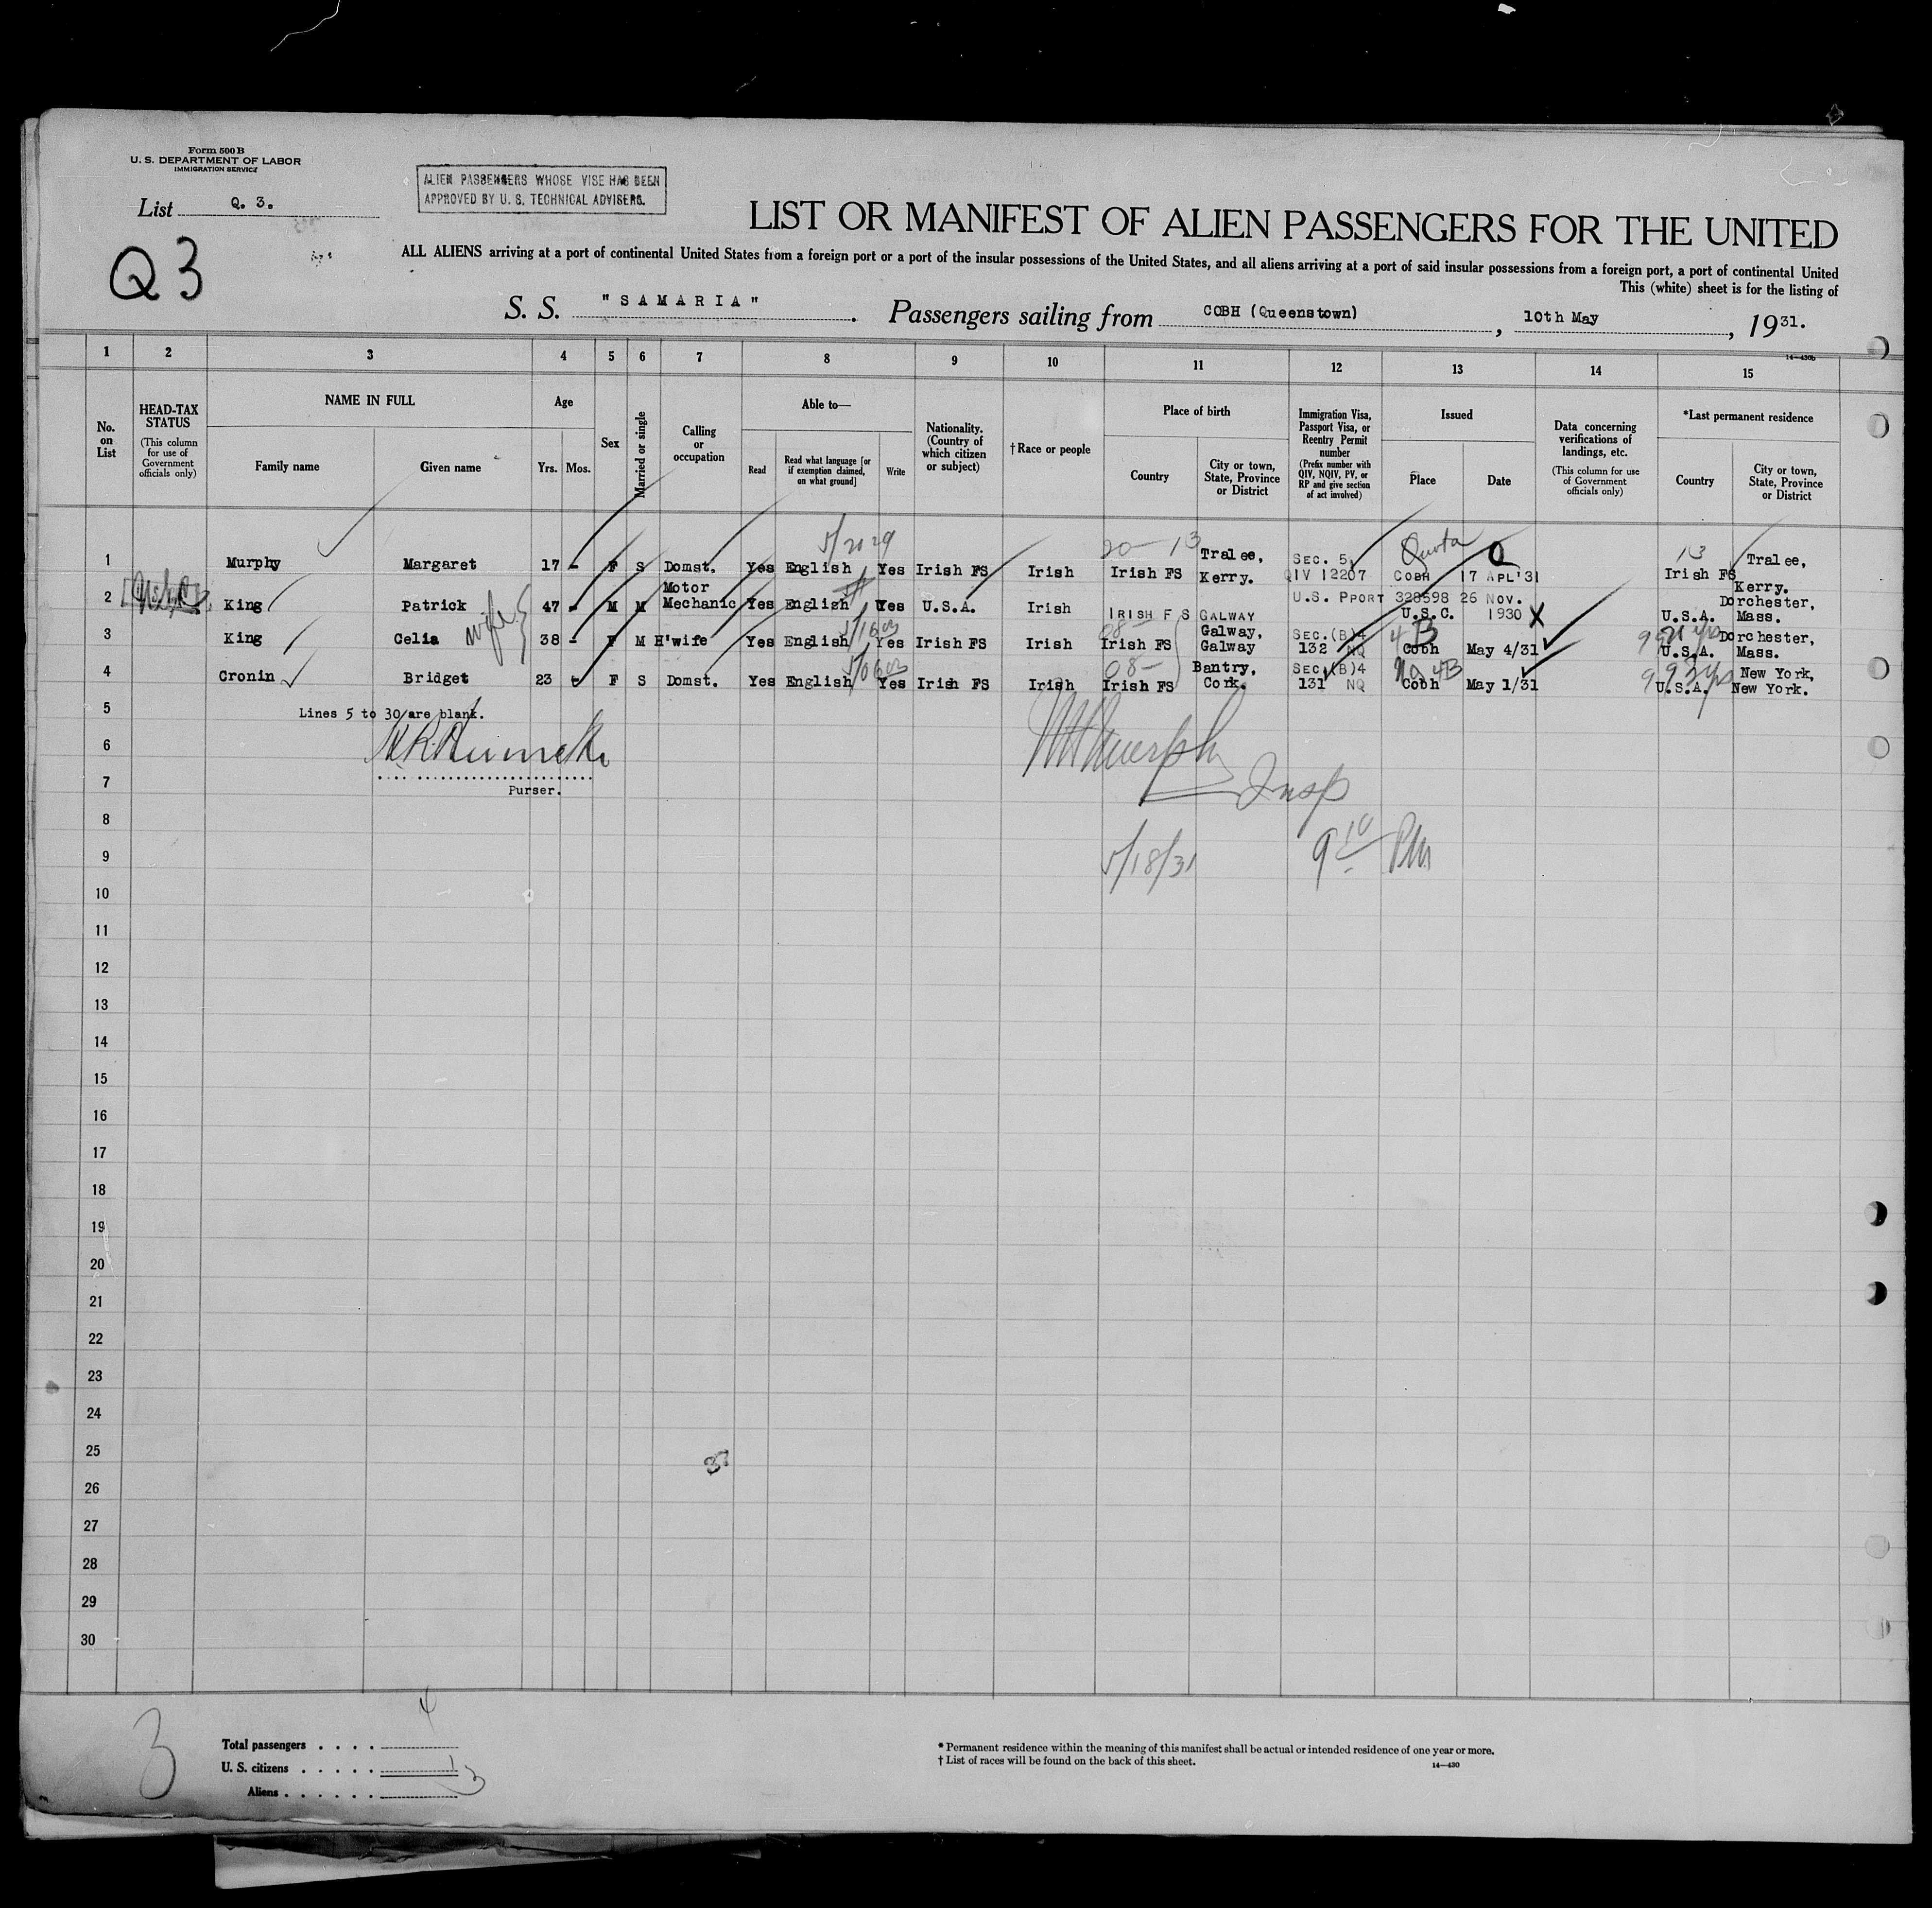 Form 500 B
U. S. DEPARTMENT OF LABOR
IMMIGRATION SERVICE
List Q. 3.
ALIEN PASSENGERS WHOSE VISE HAS BEEN
APPROVED BY U. S. TECHNICAL ADVISERS.
Q3
LIST OR MANIFEST OF ALIEN PASSENGERS FOR THE UNITED
ALL ALIENS arriving at a port of continental United States from a foreign port or a port of the insular possessions of the United States, and all aliens arriving at a port of said insular possessions from a foreign port, a port of continental United
This (white) sheet is for the listing of
S. S. "SAMARIA". Passengers sailing from COBH (Queenstown), 10th May, 1931.
14—430b
1 2 3 4 5 6 7 8 9 10 11 12 13 14 15
No. on List
HEAD-TAX STATUS
(This column for use of Government officials only)
NAME IN FULL
Family name
Given name
Age
Yrs. Mos.
Sex
Married or single
Calling or occupation
Able to—
Read
Read what language [or if exemption claimed, on what ground]
Write
Nationality. (Country of which citizen or subject)
†Race or people
Place of birth
Country
City or town, State, Province or District
Immigration Visa, Passport Visa, or Reentry Permit number
(Prefix number with QIV, NQIV, PV, or RP and give section of act involved)
Issued
Place
Date
Data concerning verifications of landings, etc.
(This column for use of Government officials only)
*Last permanent residence
Country
City or town, State, Province or District
5/2029 20-13 Quota Q 13
1 Murphy Margaret 17 - F S Domst. Yes English Yes Irish FS Irish Irish FS Tralee, Kerry. SEC. 5 QIV 12207 COBH 17 APL'31 Irish FS Tralee, Kerry.
2 King Patrick 47 - M M Motor Mechanic Yes English Yes U.S.A. Irish IRISH F S GALWAY U.S. PPORT 328598 26 NOV. U.S.C. 1930 X U.S.A. Dorchester, Mass.
wife
3 King Celia 38 - F M H'wife Yes English Yes Irish FS Irish 08- Irish FS Galway, Galway SEC.(B)4 132 NQ 4B Cobh May 4/31 U.S.A. Dorchester, Mass.
4 Cronin Bridget 23 - F S Domst. Yes English Yes Irish FS Irish 08- Irish FS Bantry, Cork. SEC.(B)4 131 NQ 4B Cobh May 1/31 U.S.A. New York, New York.
5 Lines 5 to 30 are blank.
6
7 Purser.
Insp
8
9 5/18/31 9 10 PM
10
11
12
13
14
15
16
17
18
19
20
21
22
23
24
25
26
27
28
29
30
3
4
Total passengers . . . .
U. S. citizens . . . . . 1
Aliens . . . . . . 3
* Permanent residence within the meaning of this manifest shall be actual or intended residence of one year or more.
† List of races will be found on the back of this sheet.
14—430